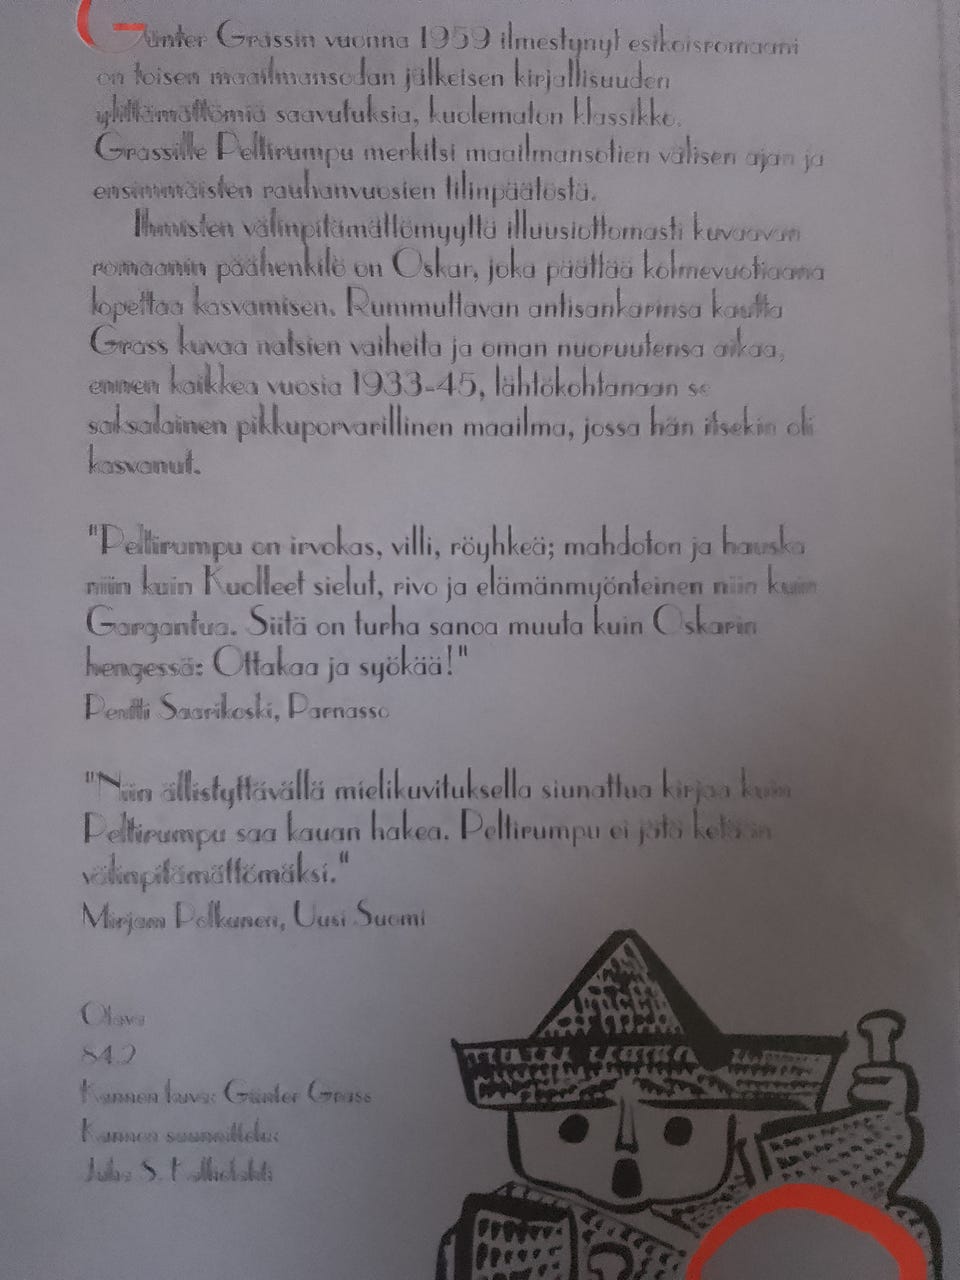 Günter Grassin vuonna 1959 ilmestynyt esikoisromaani
on toisen maailmansodan jälkeisen kirjallisuuden
ylittämättömiä saavutuksia, kuolematon klassikko.
Grassille Peltirumpu merkitsi maailmansotien välisen ajan ja
ensimmäisten rauhanvuosien tilinpäätöstä.
Ihmisten välinpitämättömyyttä illuusiottomasti kuvaavan
romaanin päähenkilö on Oskar, joka päättää kolmevuotiaana
lopettaa kasvamisen. Rummuttavan antisankarinsa kautta
Grass kuvaa natsien vaiheita ja oman nuoruutensa aikaa,
ennen kaikkea vuosia 1933-45, lähtökohtanaan se
saksalainen pikkuporvarillinen maailma, jossa hän itsekin oli
kasvanut.
"Peltirumpu on irvokas, villi, röyhkeä; mahdoton ja hauska
niin kuin Kuolleet sielut, rivo ja elämänmyönteinen niin kuin
Gargantua. Siitä on turha sanoa muuta kuin Oskarin
hengessä: Ottakaa ja syökää!"
Pentti Saarikoski, Parnasso
"Niin ällistyttävällä mielikuvituksella siunattua kirjaa kuin
Peltirumpu saa kauan hakea. Peltirumpu ei jätä ketään
välinpitämättömäksi."
Mirjam Polkunen, Uusi Suomi
Otava
84.2
Kannen kuva: Günter Grass
Kannen suunnittelu:
S.